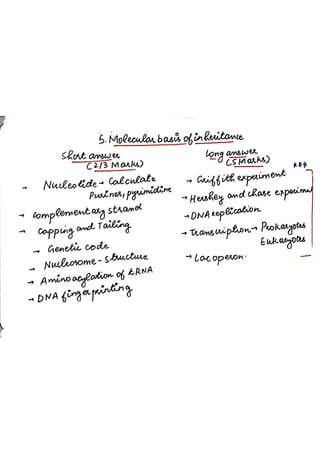 5. Molecular basis of inheritance
Short answer
(2/3 Marks)
- Nucleotide → Calculate
Purines, pyrimidine
→ Complementary strand
→ Capping and Tailing
→ Genetic code
→ Nucleosome - structure
→ Aminoacylation of tRNA
→ DNA fingerprinting
Long answer
(5 Marks)
→ Griffith experiment
→ Hershey and chase experime
→ DNA replication
→ Transcription → Prokaryotes
Eukaryotes
→ Lac operon.